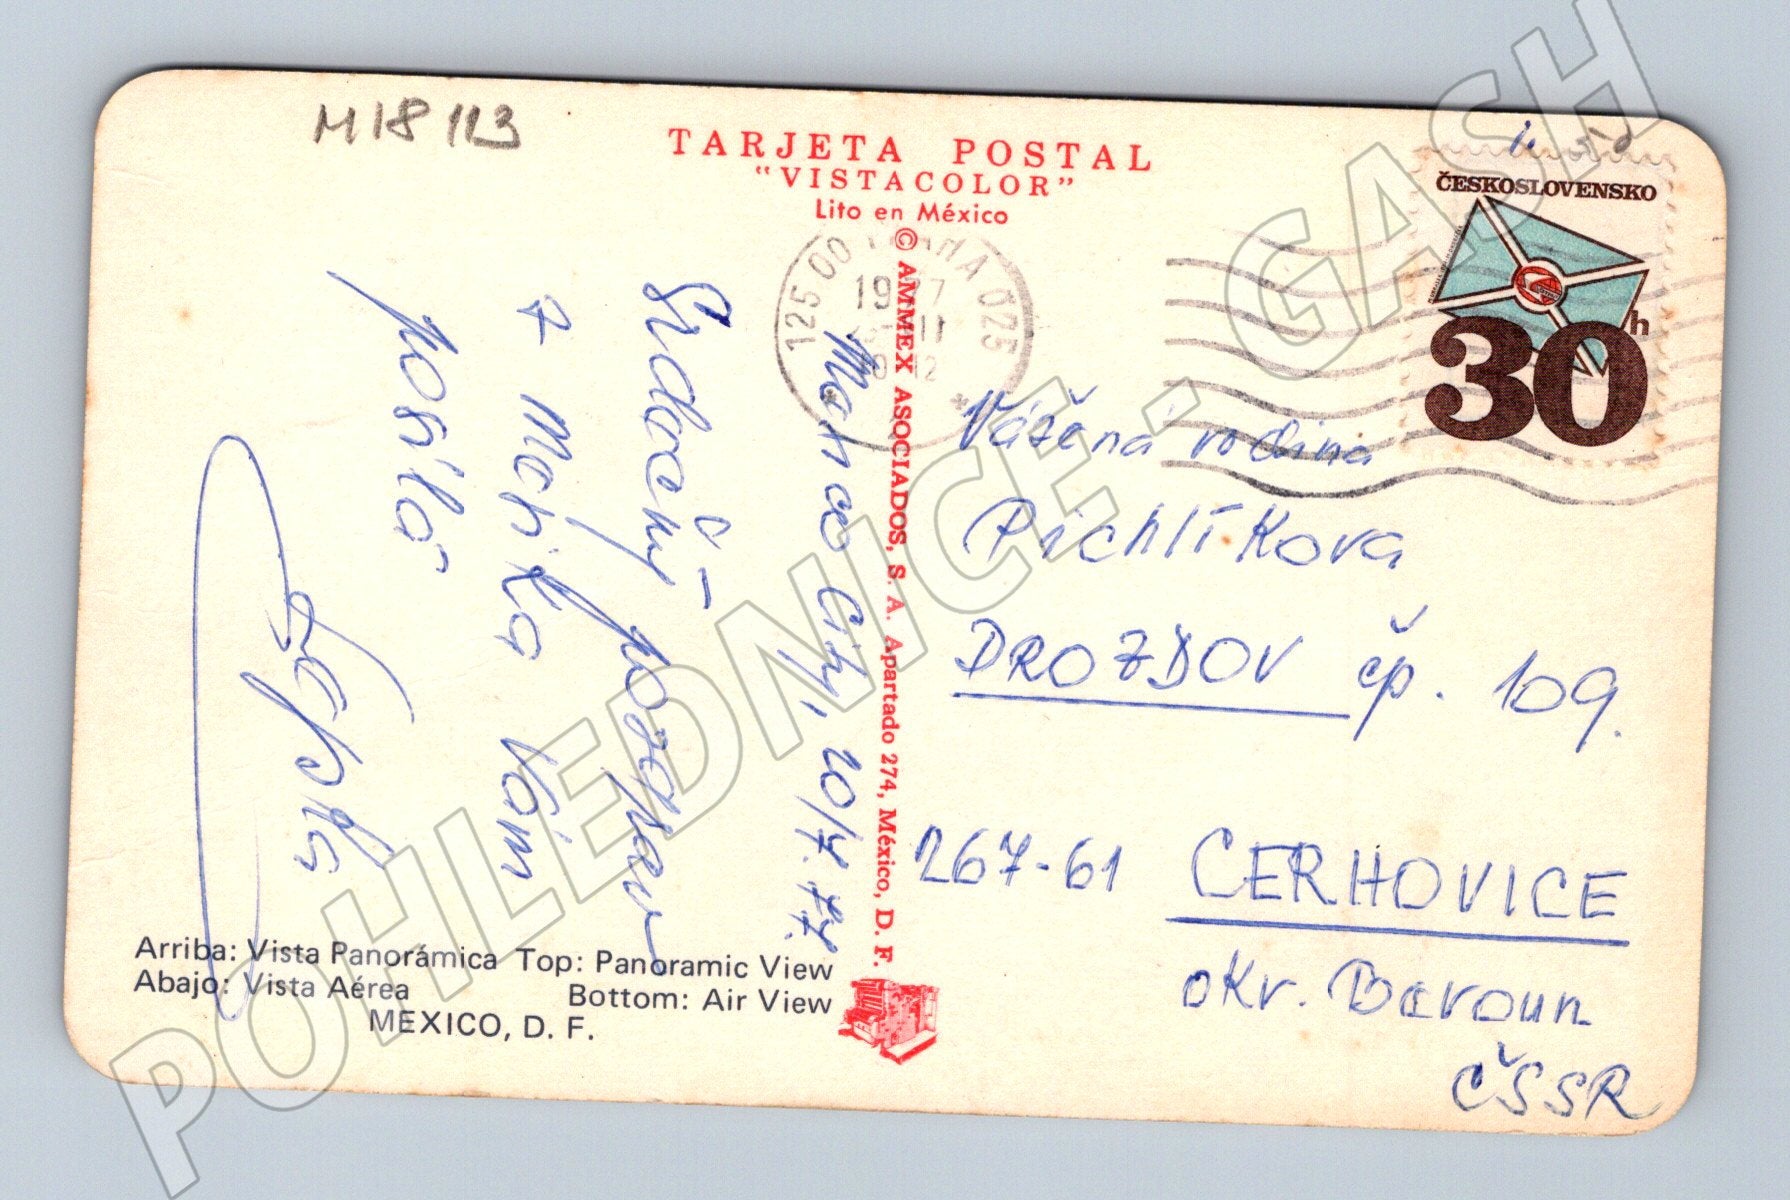 M18 113
TARJETA POSTAL
"VISTACOLOR"
Lito en México
© AMMEX ASOCIADOS, S. A. Apartado 274, México, D. F.
1.50
ČESKOSLOVENSKO
30h
125 00 PRAHA 025
1977
City, 20/7. 77.
Srdečný pozdrav
z Mexika Vám
posílá
Vážená rodina
Pichlíkova
DROZDOV čp. 109.
267-61 CERHOVICE
okr. Beroun
ČSSR
Arriba: Vista Panorámica Top: Panoramic View
Abajo: Vista Aérea Bottom: Air View
MEXICO, D. F.
POHLEDNICE - GASH